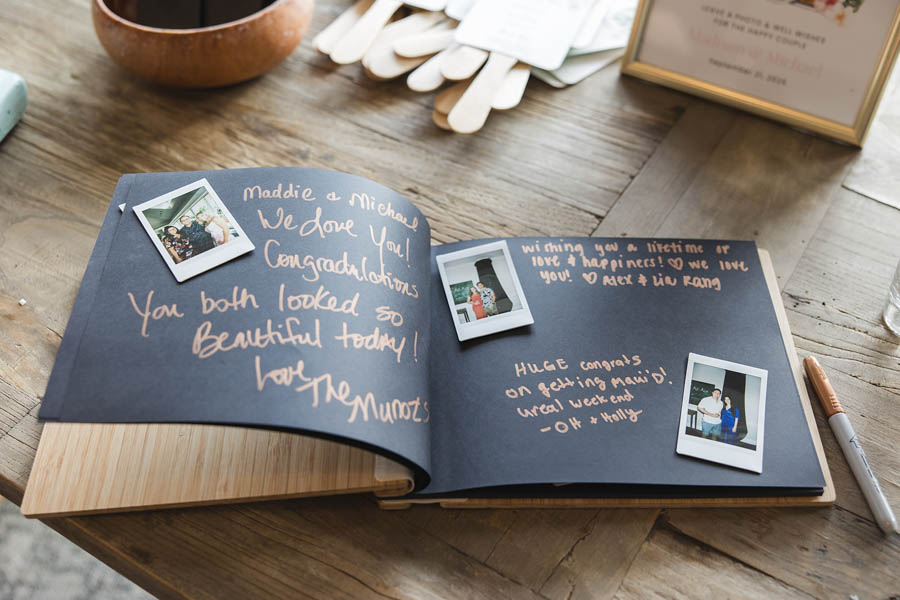 LEAVE A PHOTO & WELL WISHES
FOR THE HAPPY COUPLE
Madison & Michael
September 21, 2025
Maddie & Michael
We Love You!
Congradulations
You both looked so
Beautiful today!
Love The
Munots
wishing you a lifetime of
love & happiness! ♡ we love
you! ♡ Alex & Lia Rang
HUGE congrats
on getting maui'D!
Unreal weekend
- OH + Holly